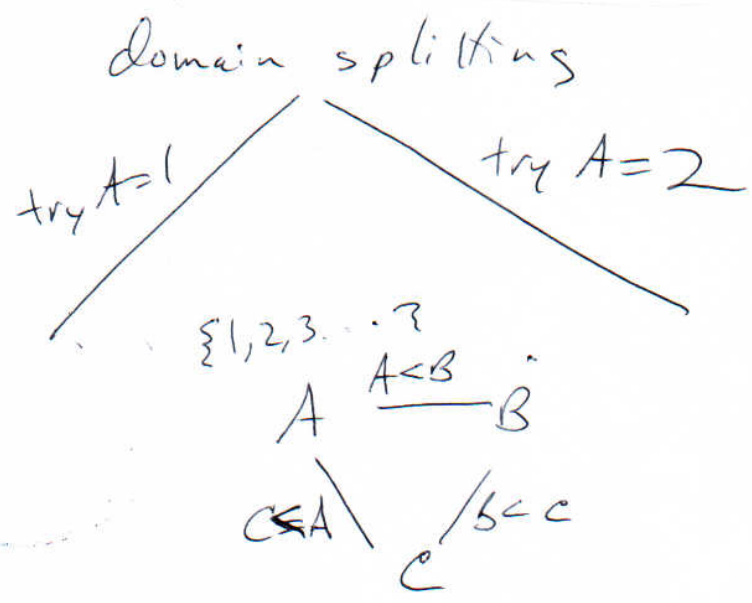 domain splitting
try A=1
try A=2
{1,2,3...}
A<B
A
B
C≤A
B<C
C